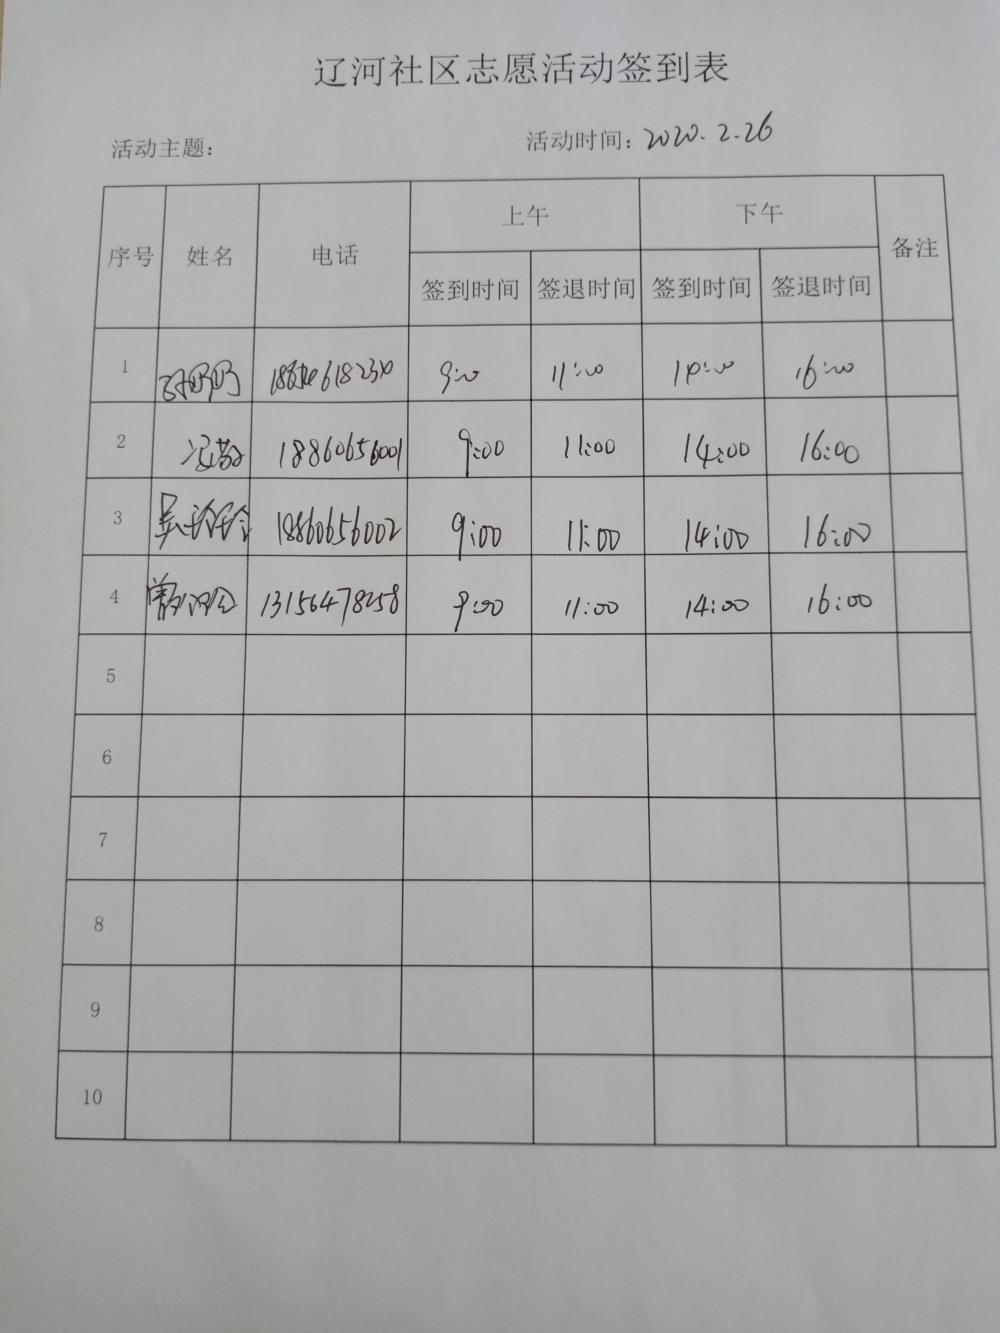 辽河社区志愿活动签到表
活动主题： 活动时间：2020.2.26
序号 姓名 电话 上午 下午 备注
签到时间 签退时间 签到时间 签退时间
1 9:00 11:00 14:00 16:00
2 18860656001 9:00 11:00 14:00 16:00
3 吴玲玲 18860656002 9:00 11:00 14:00 16:00
4 13156478258 9:00 11:00 14:00 16:00
5
6
7
8
9
10